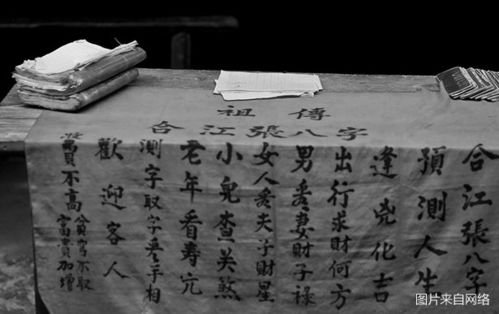 祖傳
合江張八字
合江張八字
預測人生
逢兇化吉
出行求財何方
男看妻財子禄
女人看夫子財星
小兒查关煞
老年看壽元
測字取字看手相
歡迎客人
不高
不取
富貴加增
图片来自网络